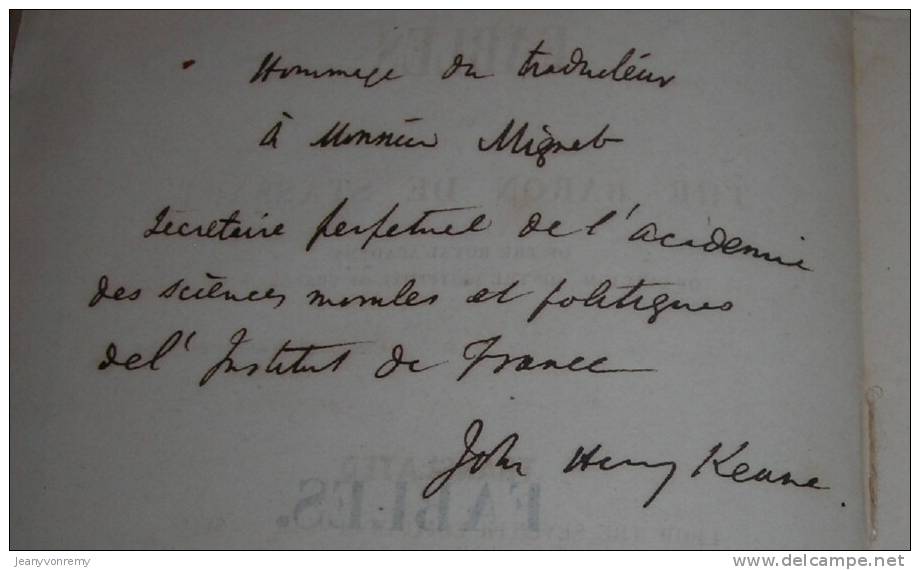 Hommage du traducteur
à Monsieur Mignet
Secretaire perpetuel de l'academie
des sciences morales et politiques
de l'Institut de France
John Henry Keane.
FABLES.
jeanyvonremy
http://www.delcampe.net